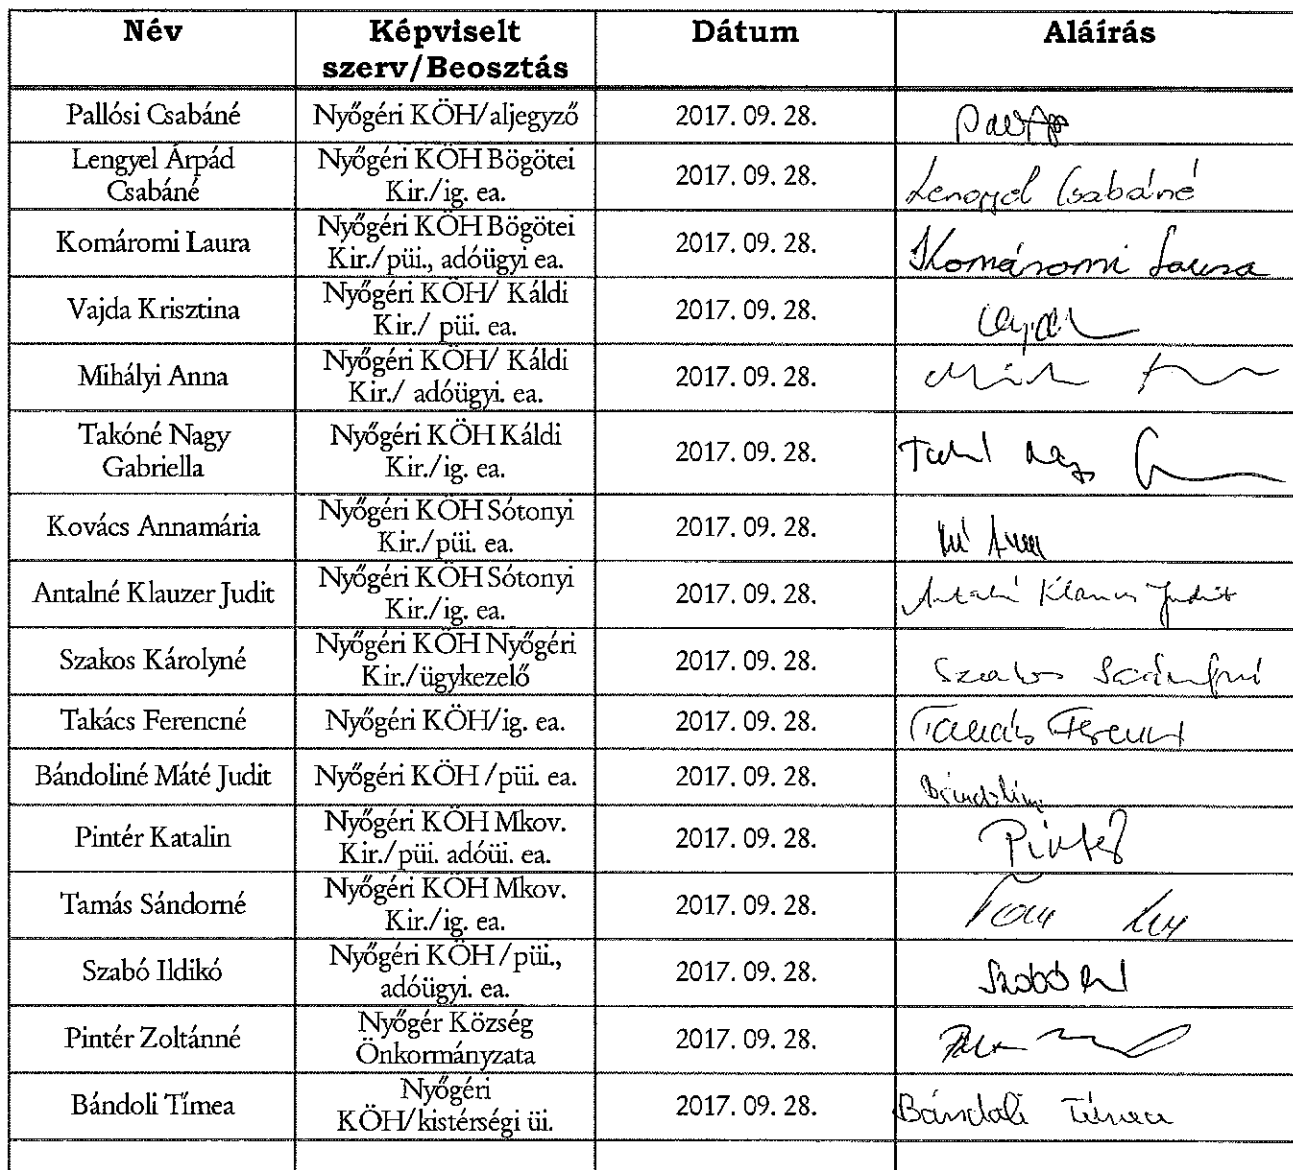 Név Képviselt szerv/Beosztás Dátum Aláírás
Pallósi Csabáné Nyőgéri KÖH/aljegyző 2017. 09. 28.
Lengyel Árpád Csabáné Nyőgéri KÖH Bögötei Kir./ig. ea. 2017. 09. 28. Lengyel Csabáné
Komáromi Laura Nyőgéri KÖH Bögötei Kir./püi., adóügyi ea. 2017. 09. 28. Komáromi Laura
Vajda Krisztina Nyőgéri KÖH/ Káldi Kir./ püi. ea. 2017. 09. 28.
Mihályi Anna Nyőgéri KÖH/ Káldi Kir./ adóügyi. ea. 2017. 09. 28.
Takóné Nagy Gabriella Nyőgéri KÖH Káldi Kir./ig. ea. 2017. 09. 28.
Kovács Annamária Nyőgéri KÖH Sótonyi Kir./püi. ea. 2017. 09. 28.
Antalné Klauzer Judit Nyőgéri KÖH Sótonyi Kir./ig. ea. 2017. 09. 28. Judit
Szakos Károlyné Nyőgéri KÖH Nyőgéri Kir./ügykezelő 2017. 09. 28.
Takács Ferencné Nyőgéri KÖH/ig. ea. 2017. 09. 28. Takács
Bándoliné Máté Judit Nyőgéri KÖH /püi. ea. 2017. 09. 28.
Pintér Katalin Nyőgéri KÖH Mkov. Kir./püi. adóüi. ea. 2017. 09. 28. Pintér
Tamás Sándorné Nyőgéri KÖH Mkov. Kir./ig. ea. 2017. 09. 28.
Szabó Ildikó Nyőgéri KÖH /püi., adóügyi. ea. 2017. 09. 28. Szabó
Pintér Zoltánné Nyőgér Község Önkormányzata 2017. 09. 28.
Bándoli Tímea Nyőgéri KÖH/kistérségi üi. 2017. 09. 28. Bándoli Tímea